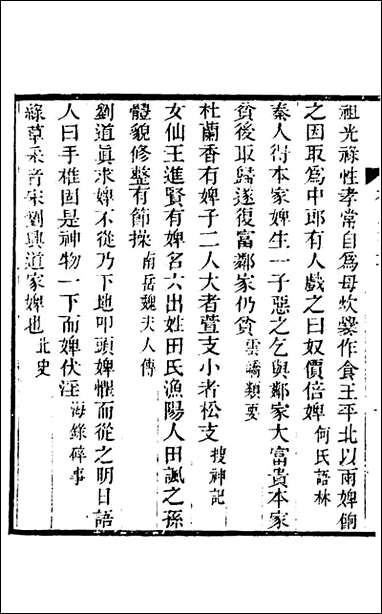 祖光祿性孝常自爲母炊爨作食王平北以兩婢餉
之因取爲中郎有人戲之曰奴價倍婢何氏語林
秦人得本家婢生一子惡之乞與鄰家大富貴本家
貧後取歸遂復富鄰家仍貧雲嶠類要
杜蘭香有婢子二人大者萱支小者松支搜神記
女仙王進賢有婢名六出姓田氏漁陽人田諷之孫
體貌修整有節操南岳魏夫人傳
劉道眞求婢不從乃下地叩頭婢懼而從之明日語
人曰手椎固是神物一下而婢伏淫海錄碎事
綠草采音宋劉興道家婢也北史